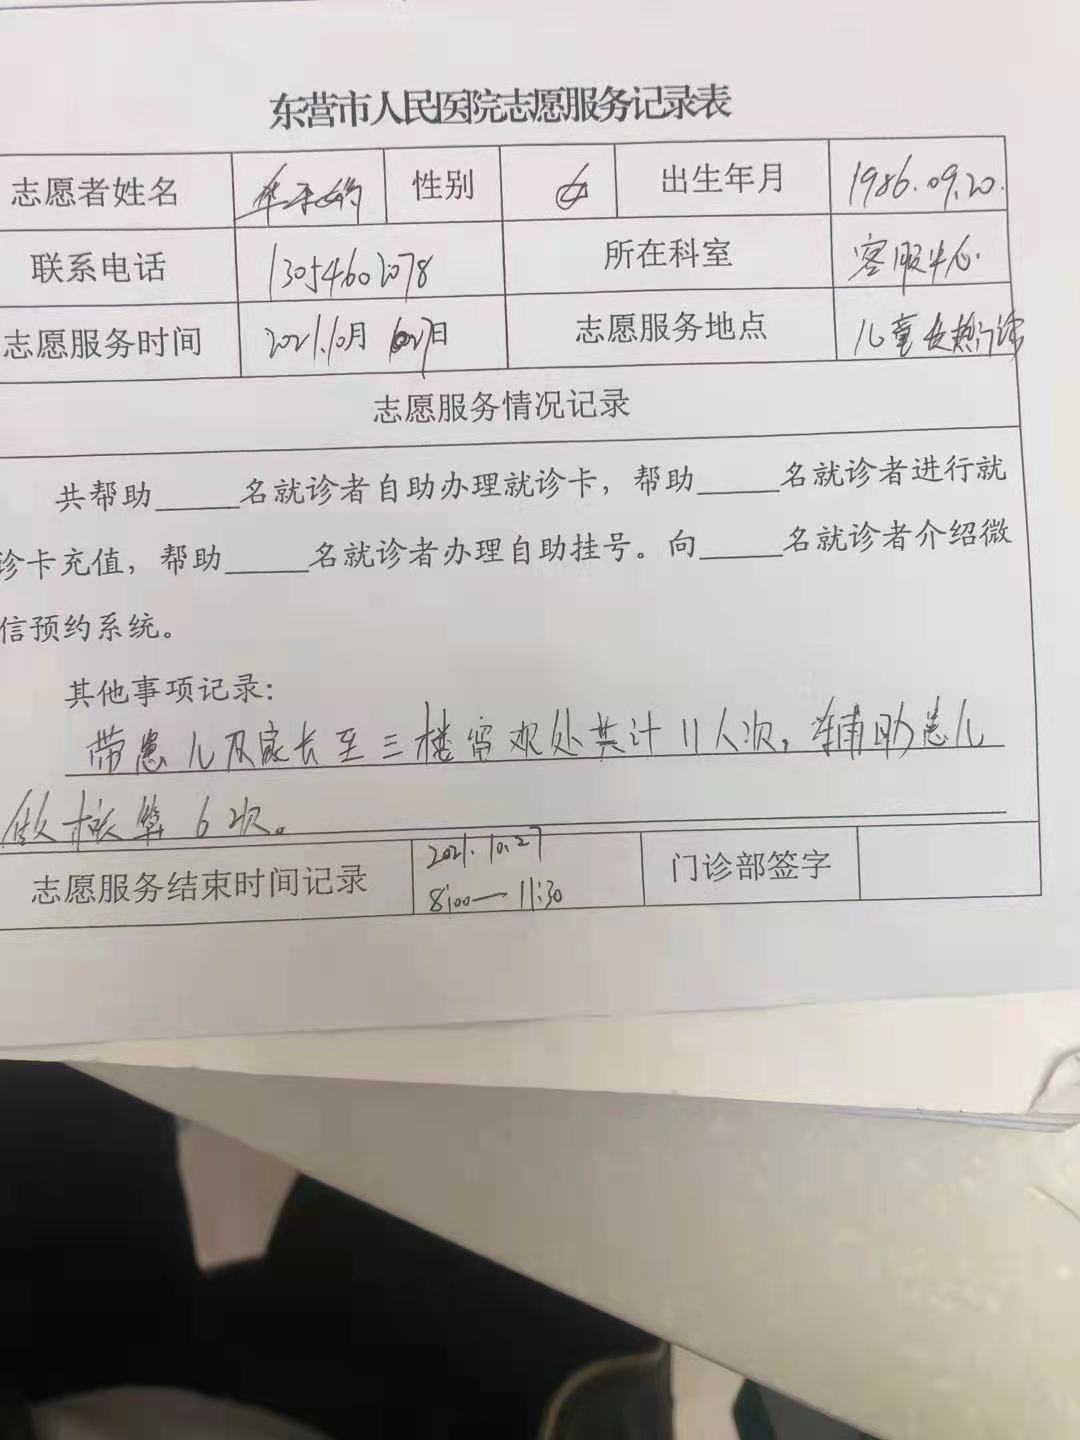 东营市人民医院志愿服务记录表
志愿者姓名 性别 女 出生年月 1986.09.20.
联系电话 13054602078 所在科室 客服中心.
志愿服务时间 2021.10月 27日 志愿服务地点 儿童发热门诊
志愿服务情况记录
共帮助_____名就诊者自助办理就诊卡，帮助_____名就诊者进行就
诊卡充值，帮助_____名就诊者办理自助挂号。向_____名就诊者介绍微
信预约系统。
其他事项记录：
带患儿及家长至三楼留观处共计11人次，辅助患儿
做核算6次。
志愿服务结束时间记录 2021.10.27 门诊部签字
8:00—11:30